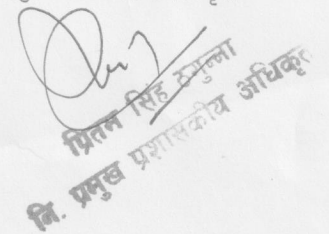 प्रितम सिंह ठगुन्ना
नि. प्रमुख प्रशासकीय अधिकृत